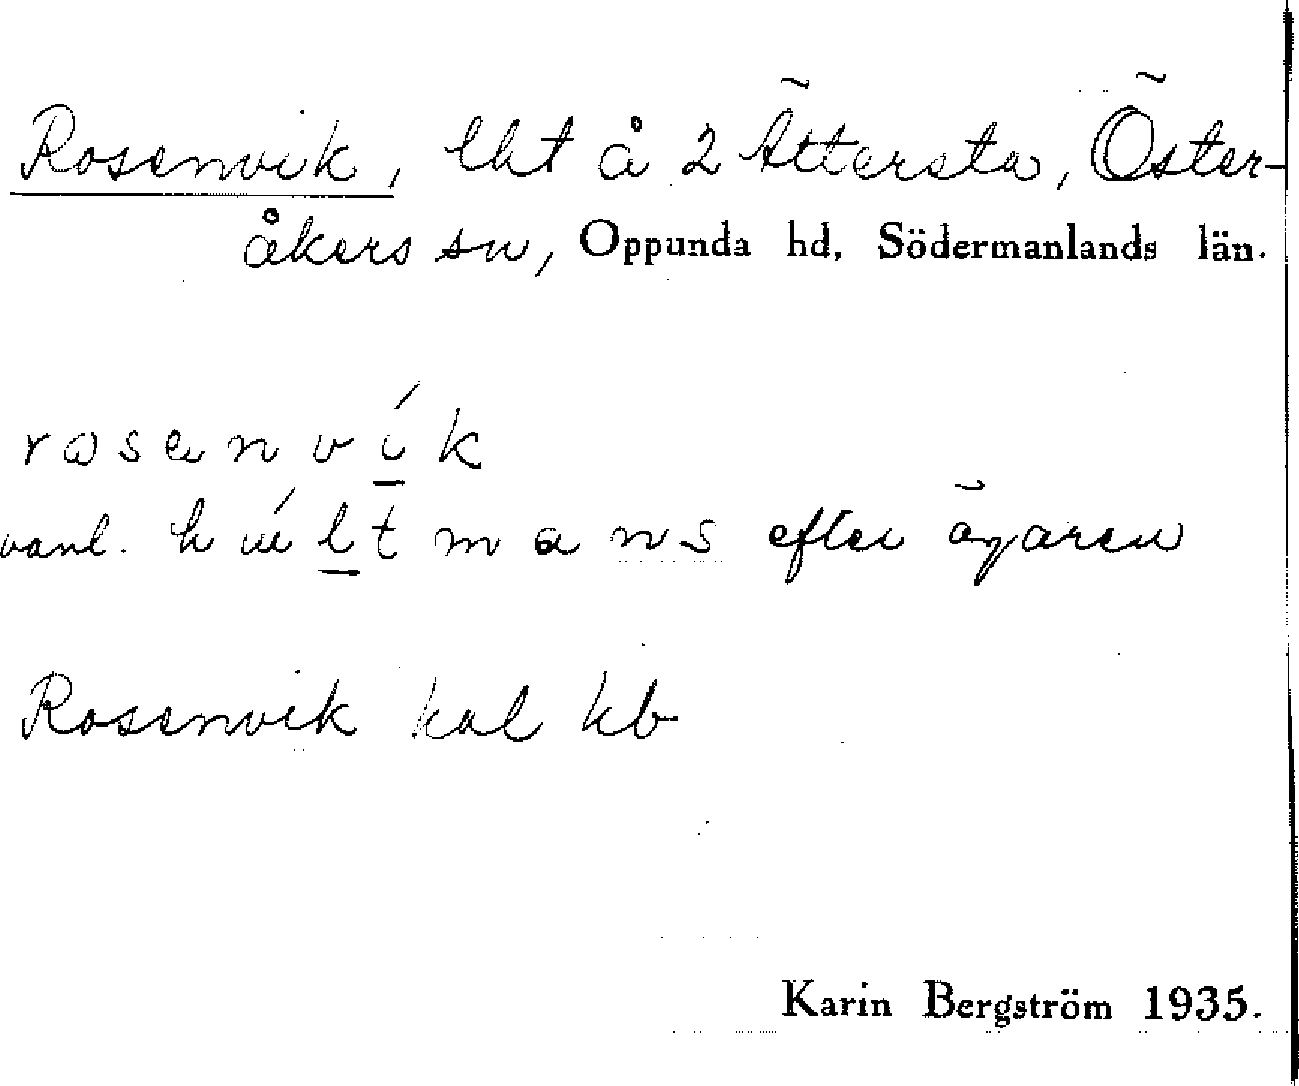 Rosenvik, lht å 2 Ättersta, Öster-
åkers sn, Oppunda hd, Södermanlands län.
rosenvík
vanl. húltmans efter ägaren
Rosenvik kal kb
Karin Bergström 1935.